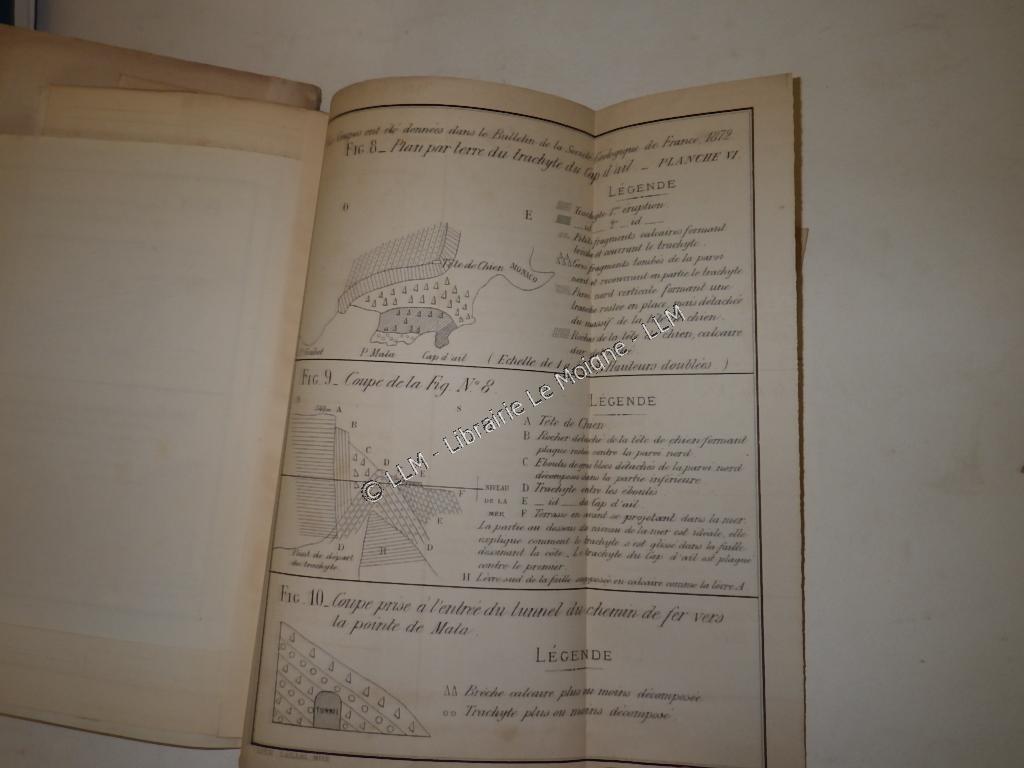 Coupes ont été données dans le Bulletin de la Société Géologique de France, 1879
FIG. 8 _ Plan par terre du trachyte du Cap d'ail _ PLANCHE VI
LÉGENDE
O
E
Trachyte 1re éruption
id 2e id
Petits fragments calcaires formant
brèche et couvrant le trachyte.
Gros fragments tombés de la paroi
nord et recouvrant en partie le trachyte
Paroi nord verticale formant une
tranche restée en place, mais détachée
du massif de la tête de chien.
Roches de la tête de chien, calcaire
Tête de Chien
MONACO
P. Mala
Cap d'ail
(Echelle de Hauteurs doublées)
FIG. 9 _ Coupe de la Fig. No 8.
LÉGENDE
S
A
B
C
D
E
F
NIVEAU
DE LA
MER
E
D
D
H
Point de départ
du trachyte
A Tête de Chien
B Rocher détaché de la tête de chien formant
plaque restée contre la paroi nord
C Eboulis de gros blocs détachés de la paroi nord
décomposés dans la partie inférieure
D Trachyte entre les éboulis
E _ id _ du Cap d'ail
F Terrasse en avant se projetant dans la mer.
La partie au dessous du niveau de la mer est idéale, elle
explique comment le trachyte s'est glissé dans la faille
dessinant la côte _ Le trachyte du Cap d'ail est plaqué
contre le premier.
H Lèvre sud de la faille supposée en calcaire comme la lèvre A
FIG. 10 _ Coupe prise à l'entrée du tunnel du chemin de fer vers
la pointe de Mala.
LÉGENDE
Brèche calcaire plus ou moins décomposée
Trachyte plus ou moins décomposé
TUNNEL
© LLM - Librairie Le Moigne - LLM